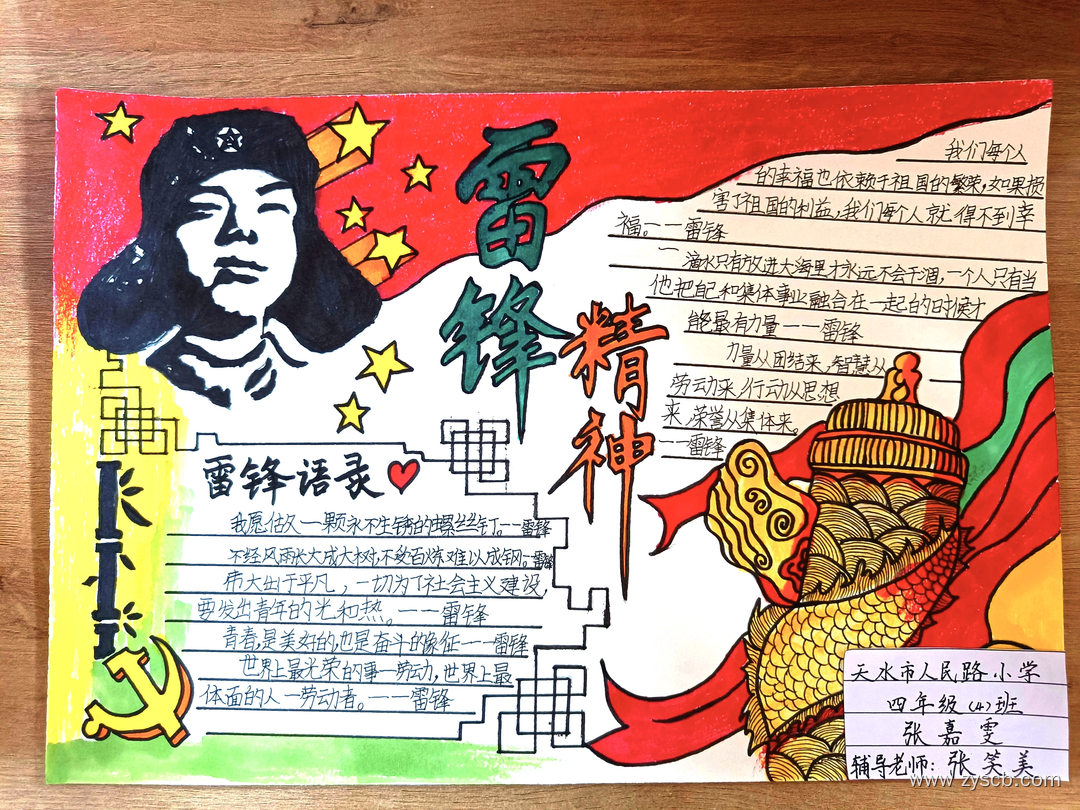 雷锋
精神
我们每个人
的幸福也依赖于祖国的繁荣,如果损
害了祖国的利益,我们每个人就得不到幸
福。——雷锋
一滴水只有放进大海里才永远不会干涸,一个人只有当
他把自己和集体事业融合在一起的时候才
能最有力量——雷锋
力量从团结来,智慧从
劳动来,行动从思想
来,荣誉从集体来。
——雷锋
雷锋语录
我愿做一颗永不生锈的螺丝钉。——雷锋
不经风雨,长不成大树,不受百炼,难以成钢。——雷锋
伟大出于平凡,一切为了社会主义建设,
要发出青年的光和热。——雷锋
青春,是美好的,也是奋斗的象征——雷锋
世界上最光荣的事—劳动,世界上最
体面的人—劳动者。——雷锋
天水市人民路小学
四年级(4)班
张嘉雯
辅导老师:张笑美
www.zyscb.com